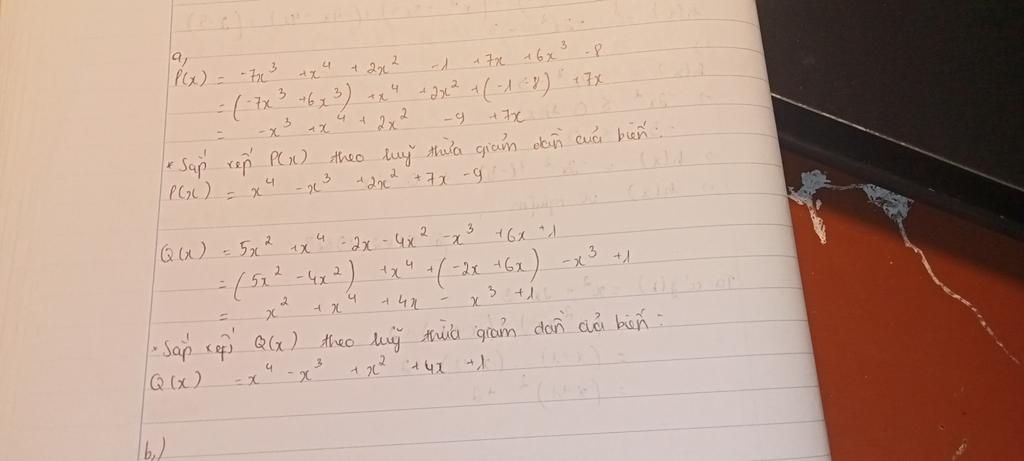 a,
P(x) = -7x³ +x⁴ + 2x² -1 +7x +6x³ -8
= (-7x³ +6x³) +x⁴ +2x² +(-1-8) +7x
= -x³ +x⁴ + 2x² -9 +7x
* Sắp xếp P(x) theo luỹ thừa giảm dần của biến:
P(x) = x⁴ -x³ +2x² +7x -9
Q(x) = 5x² +x⁴ -2x -4x² -x³ +6x +1
= (5x² -4x²) +x⁴ +(-2x +6x) -x³ +1
= x² +x⁴ +4x - x³ +1
* Sắp xếp Q(x) theo luỹ thừa giảm dần của biến:
Q(x) = x⁴ -x³ +x² +4x +1
b,)